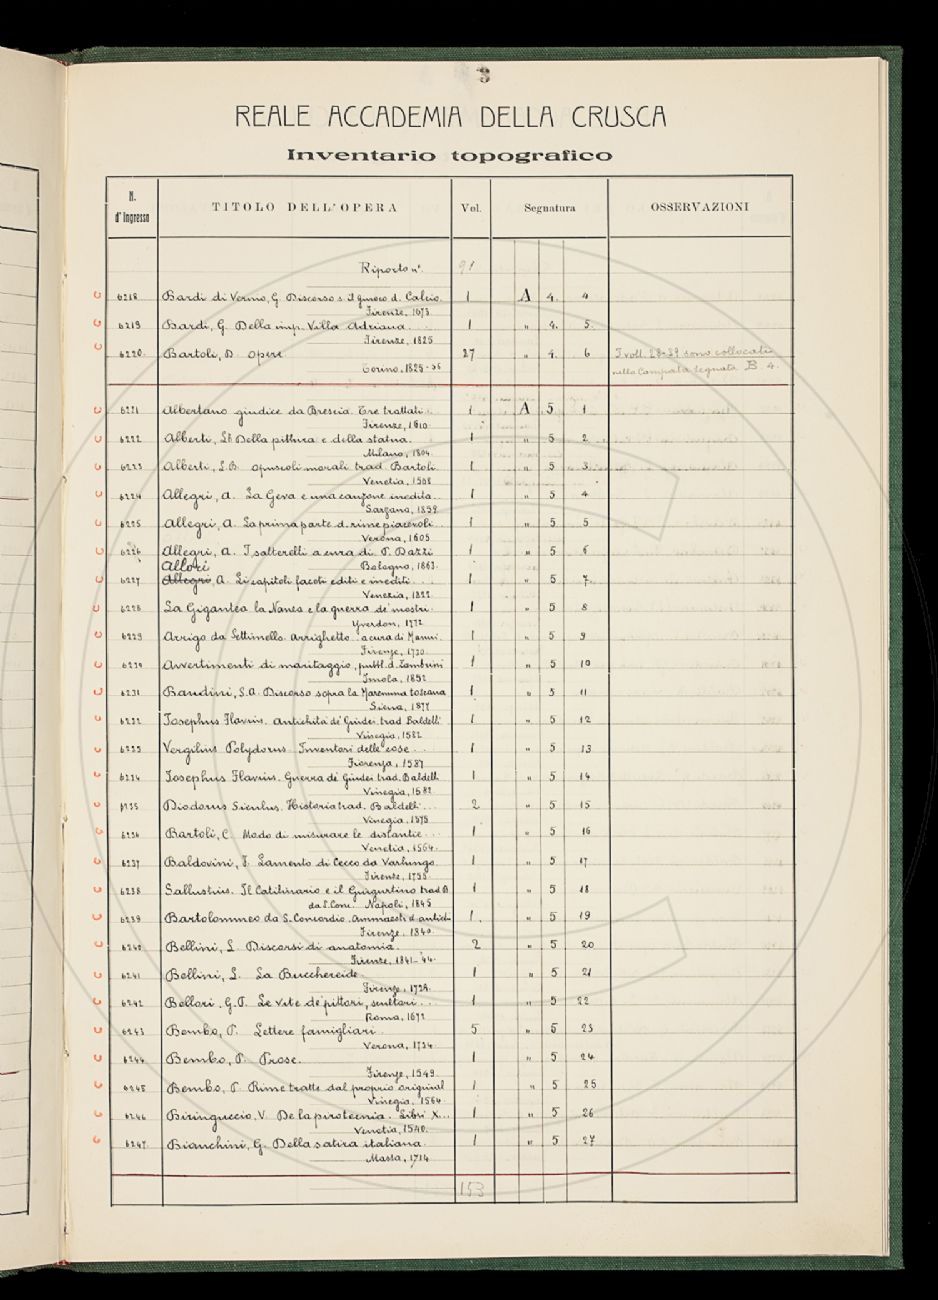 3
REALE ACCADEMIA DELLA CRUSCA
Inventario topografico
N. d'Ingresso TITOLO DELL'OPERA Vol. Segnatura OSSERVAZIONI
Riporto n°. 91
6218 Bardi di Vernio, G. Discorso s. il giuoco d. Calcio. 1 A 4. 4
Firenze, 1673.
6219 Bardi, G. Della imp. Villa Adriana. 1 " 4. 5.
Firenze, 1825
6220. Bartoli, D. Opere 27 " 4. 6 I voll. 28-39 sono collocati
Torino, 1825-56 nella Campata segnata B. 4.
6221 Albertano giudice da Brescia. Tre trattati. 1 A 5 1
Firenze, 1610
6222 Alberti, L.B. Della pittura e della statua. 1 " 5 2
Milano, 1804.
6223 Alberti, L.B. Opuscoli morali trad. Bartoli. 1 " 5 3
Venetia, 1568
6224 Allegri, A. La Geva e una canzone inedita. 1 " 5 4
Sarzana, 1859.
6225 Allegri, A. La prima parte d. rime piacevoli 1 " 5 5
Verona, 1605
6226 Allegri, A. I salterelli a cura di P. Dazzi 1 " 5 6
Bologna, 1863.
Allori
6227 Allegri A. Li capitoli faceti editi e inediti 1 " 5 7.
Venezia, 1822.
6228 La Gigantea la Nanea e la guerra de' mostri. 1 " 5 8
Yverdon, 1772
6229 Arrigo da Settimello. Arrighetto. a cura di Manni. 1 " 5 9
Firenze, 1730.
6230 Avvertimenti di maritaggio, pubbl. d. Zambrini 1 " 5 10
Imola, 1852
6231 Bandini, S.A. Discorso sopra la Maremma toscana 1. " 5 11
Siena, 1877
6232 Josephus Flavius. Antichità de' Giudei trad Baldelli 1 " 5 12
Vinegia, 1582.
6233 Vergilius Polydorus. Inventori delle cose 1 " 5 13
Fiorenza, 1587
6234 Josephus Flavius. Guerra de' Giudei trad. Baldelli 1 " 5 14
Vinegia, 1582.
6235 Diodorus Siculus. Historia trad. Baldelli 2 " 5 15
Vinegia, 1575
6236 Bartoli, C. Modo di misurare le distantie 1 " 5 16
Venetia, 1564.
6237 Baldovini, F. Lamento di Cecco da Varlungo. 1 " 5 17
Firenze, 1755.
6238 Sallustius. Il Catilinario e il Giugurtino trad B. 1 " 5 18
da S. Conc. Napoli, 1845
6239 Bartolommeo da S. Concordio. Ammaestr. d. antichi 1. " 5 19
Firenze, 1840.
6240 Bellini, L. Discorsi di anatomia. 2 " 5 20
Firenze, 1841-44.
6241 Bellini, L. La Bucchereide. 1 " 5 21
Firenze, 1729.
6242 Bellori, G.P. Le vite de' pittori, scultori 1 " 5 22
Roma, 1672
6243 Bembo, P. Lettere famigliari 5 " 5 23
Verona, 1734.
6244 Bembo, P. Prose. 1 " 5 24
Firenze, 1549.
6245 Bembo, P. Rime tratte dal proprio original 1 " 5 25
Vinegia, 1564.
6246 Biringuccio, V. De la pirotecnia. Libri X. 1 " 5 26
Venetia, 1540.
6247 Bianchini, G. Della satira italiana. 1 " 5 27
Massa, 1714
153